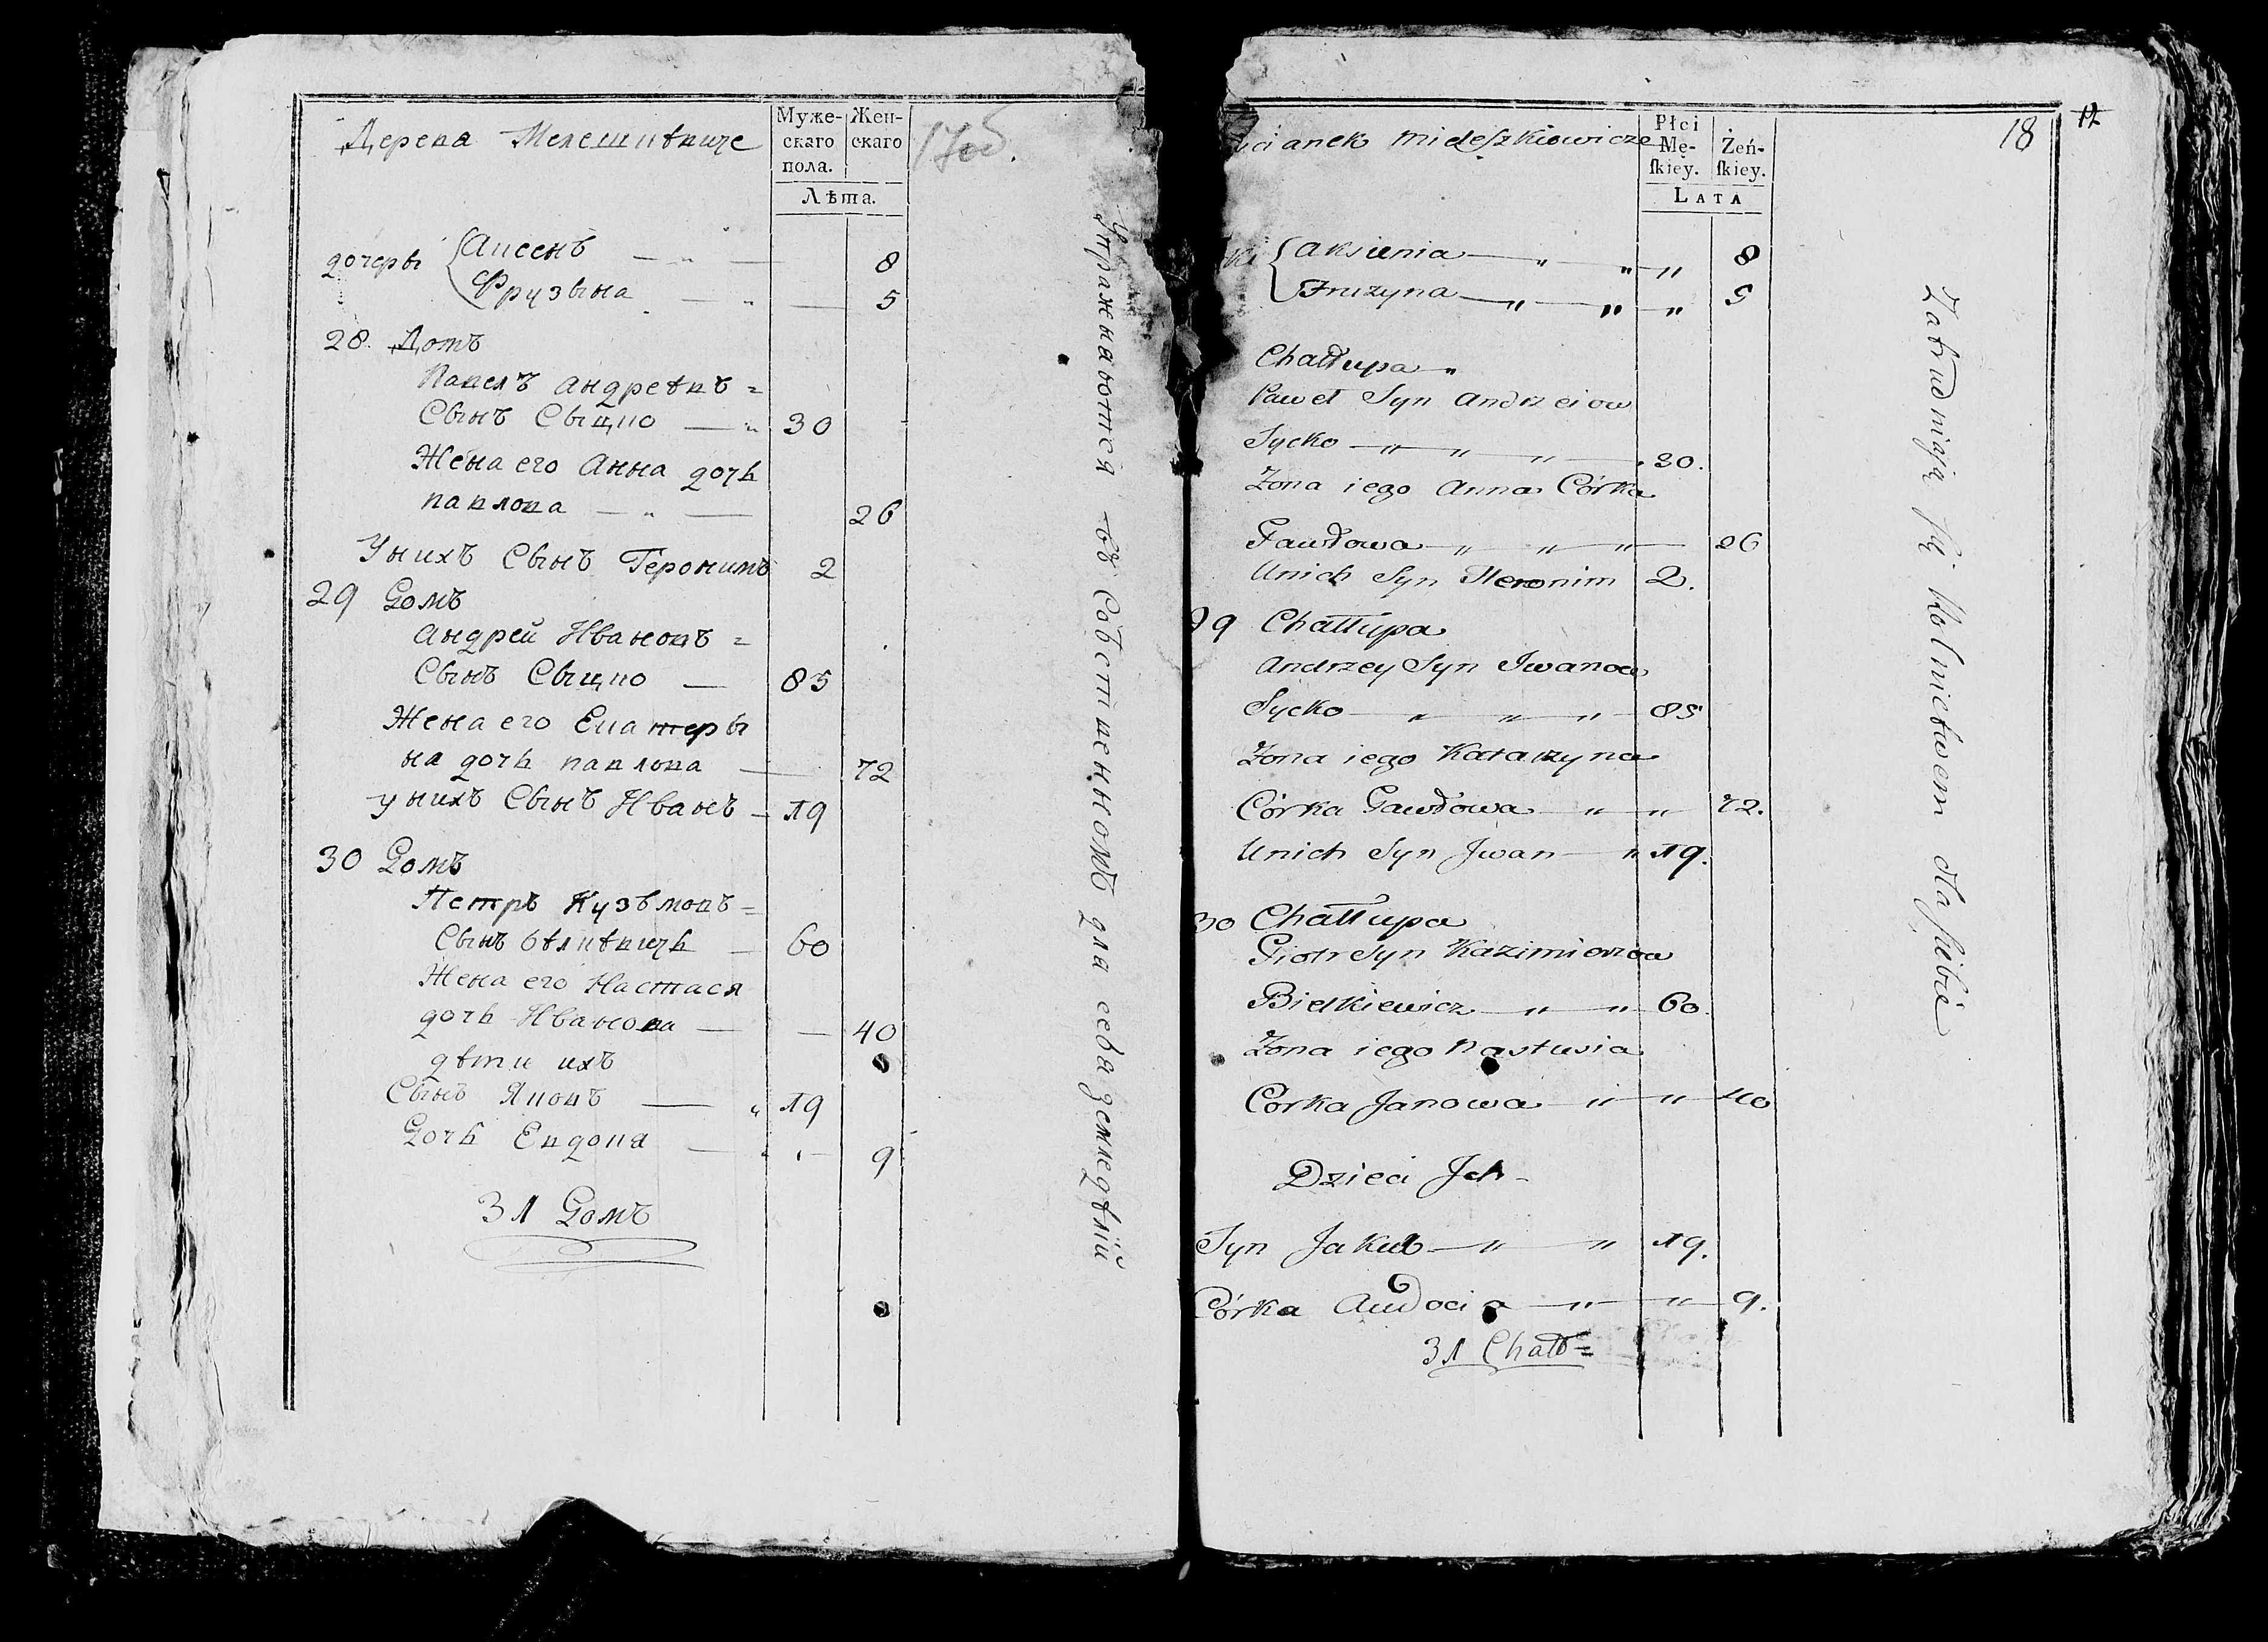 Дерева Мелешпѣвиче
Муже-
скаго
пола.
Жен-
скаго
Лѣта.
17об.
дочеры
Аксенъ — „ — 8
Фрузына — „ — 5
28. Домъ
Павелъ Андреѣвъ =
Сынъ Сыцко — „ 30
Жена его Анна дочь
павлова — „ — 26
У нихъ Сынъ Геронимъ 2
29 Домъ
Андрей Ивановъ =
Сынъ Сыцко — 85
Жена его Екатеры
на дочь павлова — 72
у нихъ Сынъ Иванъ — 19
30 Домъ
Петръ Кузьмовъ =
Сынъ бѣлкѣвичь — 60
Жена его Настася
дочь Иванова — — 40
дѣти ихъ
Сынъ Яковъ — „ 19
Дочь Евдокія — „ — 9
31 Домъ
Упражняются въ собственномъ для себя земледѣліи
ścianek Mieleszkiewicze
Płci
Mę-
skiey.
Żeń-
skiey.
LATA
18
ki
Aksienia — „ „ — „ 8
Fruzyna — „ — „ — „ 5
Chałłupa „
Paweł Syn Andrzeiow
Sycko — „ „ „ — 30.
Żona iego Anna Córka
Pawłowa — „ „ — „ — 26
Unich Syn Heronim 2.
29 Chałłupa
Andrzey Syn Iwanow
Sycko — „ „ „ — 85
Żona iego Katarzyna
Córka Pawłowa „ — „ 72.
Unich Syn Jwan — „ 19.
30 Chałłupa
Piotr Syn Kazimierzow
Bielkiewicz — „ — „ 60.
Żona iego Nastusia
Corka Janowa — „ — „ 40
Dzieci Jch -
Syn Jakub — „ „ 19.
Córka Audocia — „ — „ — 9.
31 Chałł =
Zatrudniają się Rolnictwem dla siebie